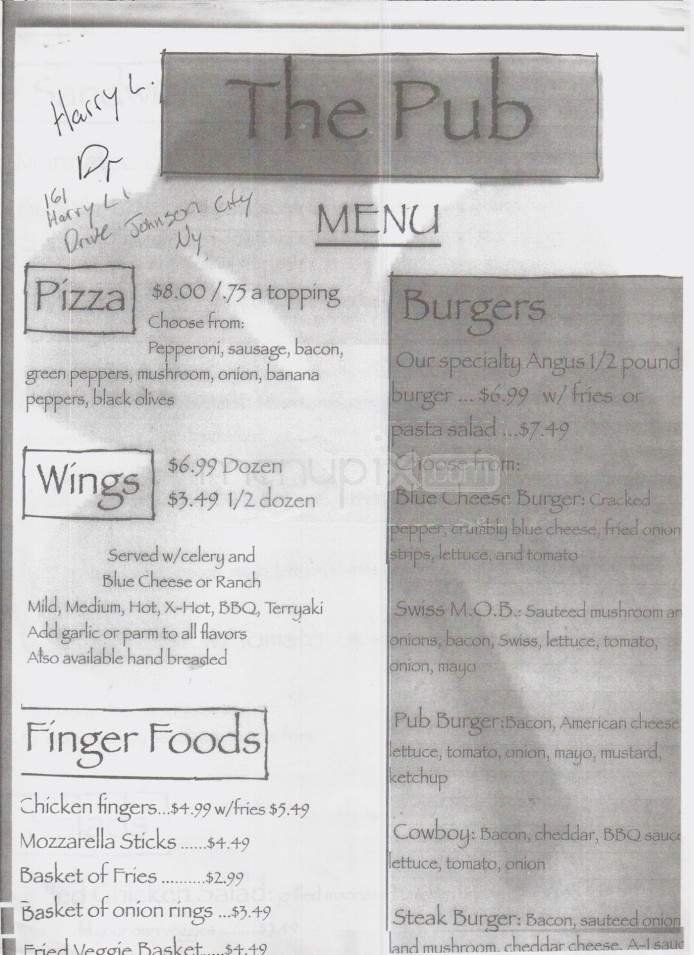 The Pub
Harry L.
Dr
161
Harry L
Drive Johnson City
Ny
MENU
Pizza
$8.00 /.75 a topping
Choose from:
Pepperoni, sausage, bacon,
green peppers, mushroom, onion, banana
peppers, black olives
Wings
$6.99 Dozen
$3.49 1/2 dozen
Served w/celery and
Blue Cheese or Ranch
Mild, Medium, Hot, X-Hot, BBQ, Terryaki
Add garlic or parm to all flavors
Also available hand breaded
Finger Foods
Chicken fingers...$4.99 w/fries $5.49
Mozzarella Sticks ......$4.49
Basket of Fries ..........$2.99
Basket of onion rings ...$3.49
Fried Veggie Basket.....$4.49
Burgers
Our specialty Angus 1/2 pound
burger ... $6.99 w/ fries or
pasta salad ...$7.49
Choose from:
Blue Cheese Burger: Cracked
pepper, crumbly blue cheese, fried onion
strips, lettuce, and tomato
Swiss M.O.B.: Sauteed mushroom an
onions, bacon, Swiss, lettuce, tomato,
onion, mayo
Pub Burger:Bacon, American cheese
lettuce, tomato, onion, mayo, mustard,
ketchup
Cowboy: Bacon, cheddar, BBQ sauce
lettuce, tomato, onion
Steak Burger: Bacon, sauteed onion
and mushroom, cheddar cheese, A-1 sauc
menupix.com